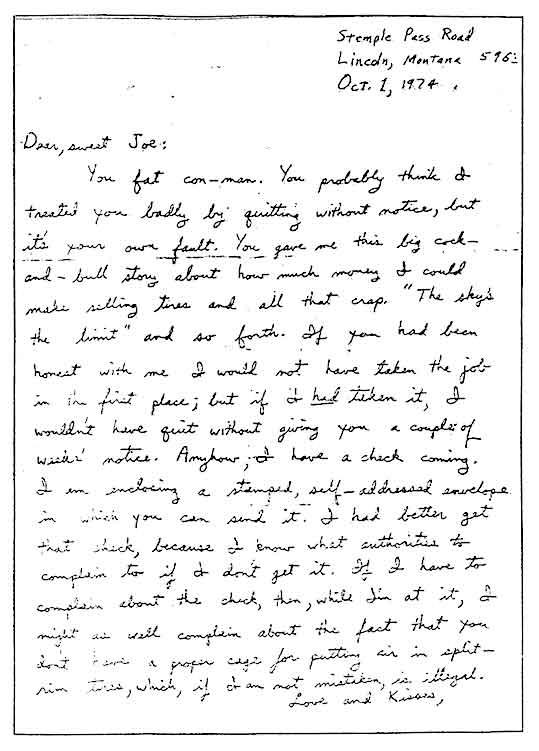 Stemple Pass Road
Lincoln, Montana 596
Oct. 1, 1974
Dear, sweet Joe:
You fat con-man. You probably think I
treated you badly by quitting without notice, but
it's your own fault. You gave me this big cock-
and-bull story about how much money I could
make selling tires and all that crap. "The sky's
the limit" and so forth. If you had been
honest with me I would not have taken the job
in the first place; but if I had taken it, I
wouldn't have quit without giving you a couple of
weeks' notice. Anyhow, I have a check coming.
I am enclosing a stamped, self-addressed envelope
in which you can send it. I had better get
that check, because I know what authorities to
complain to if I don't get it. If I have to
complain about the check, then, while I'm at it, I
might as well complain about the fact that you
dont have a proper cage for putting air in split-
rim tires, which, if I am not mistaken, is illegal.
Love and Kisses,